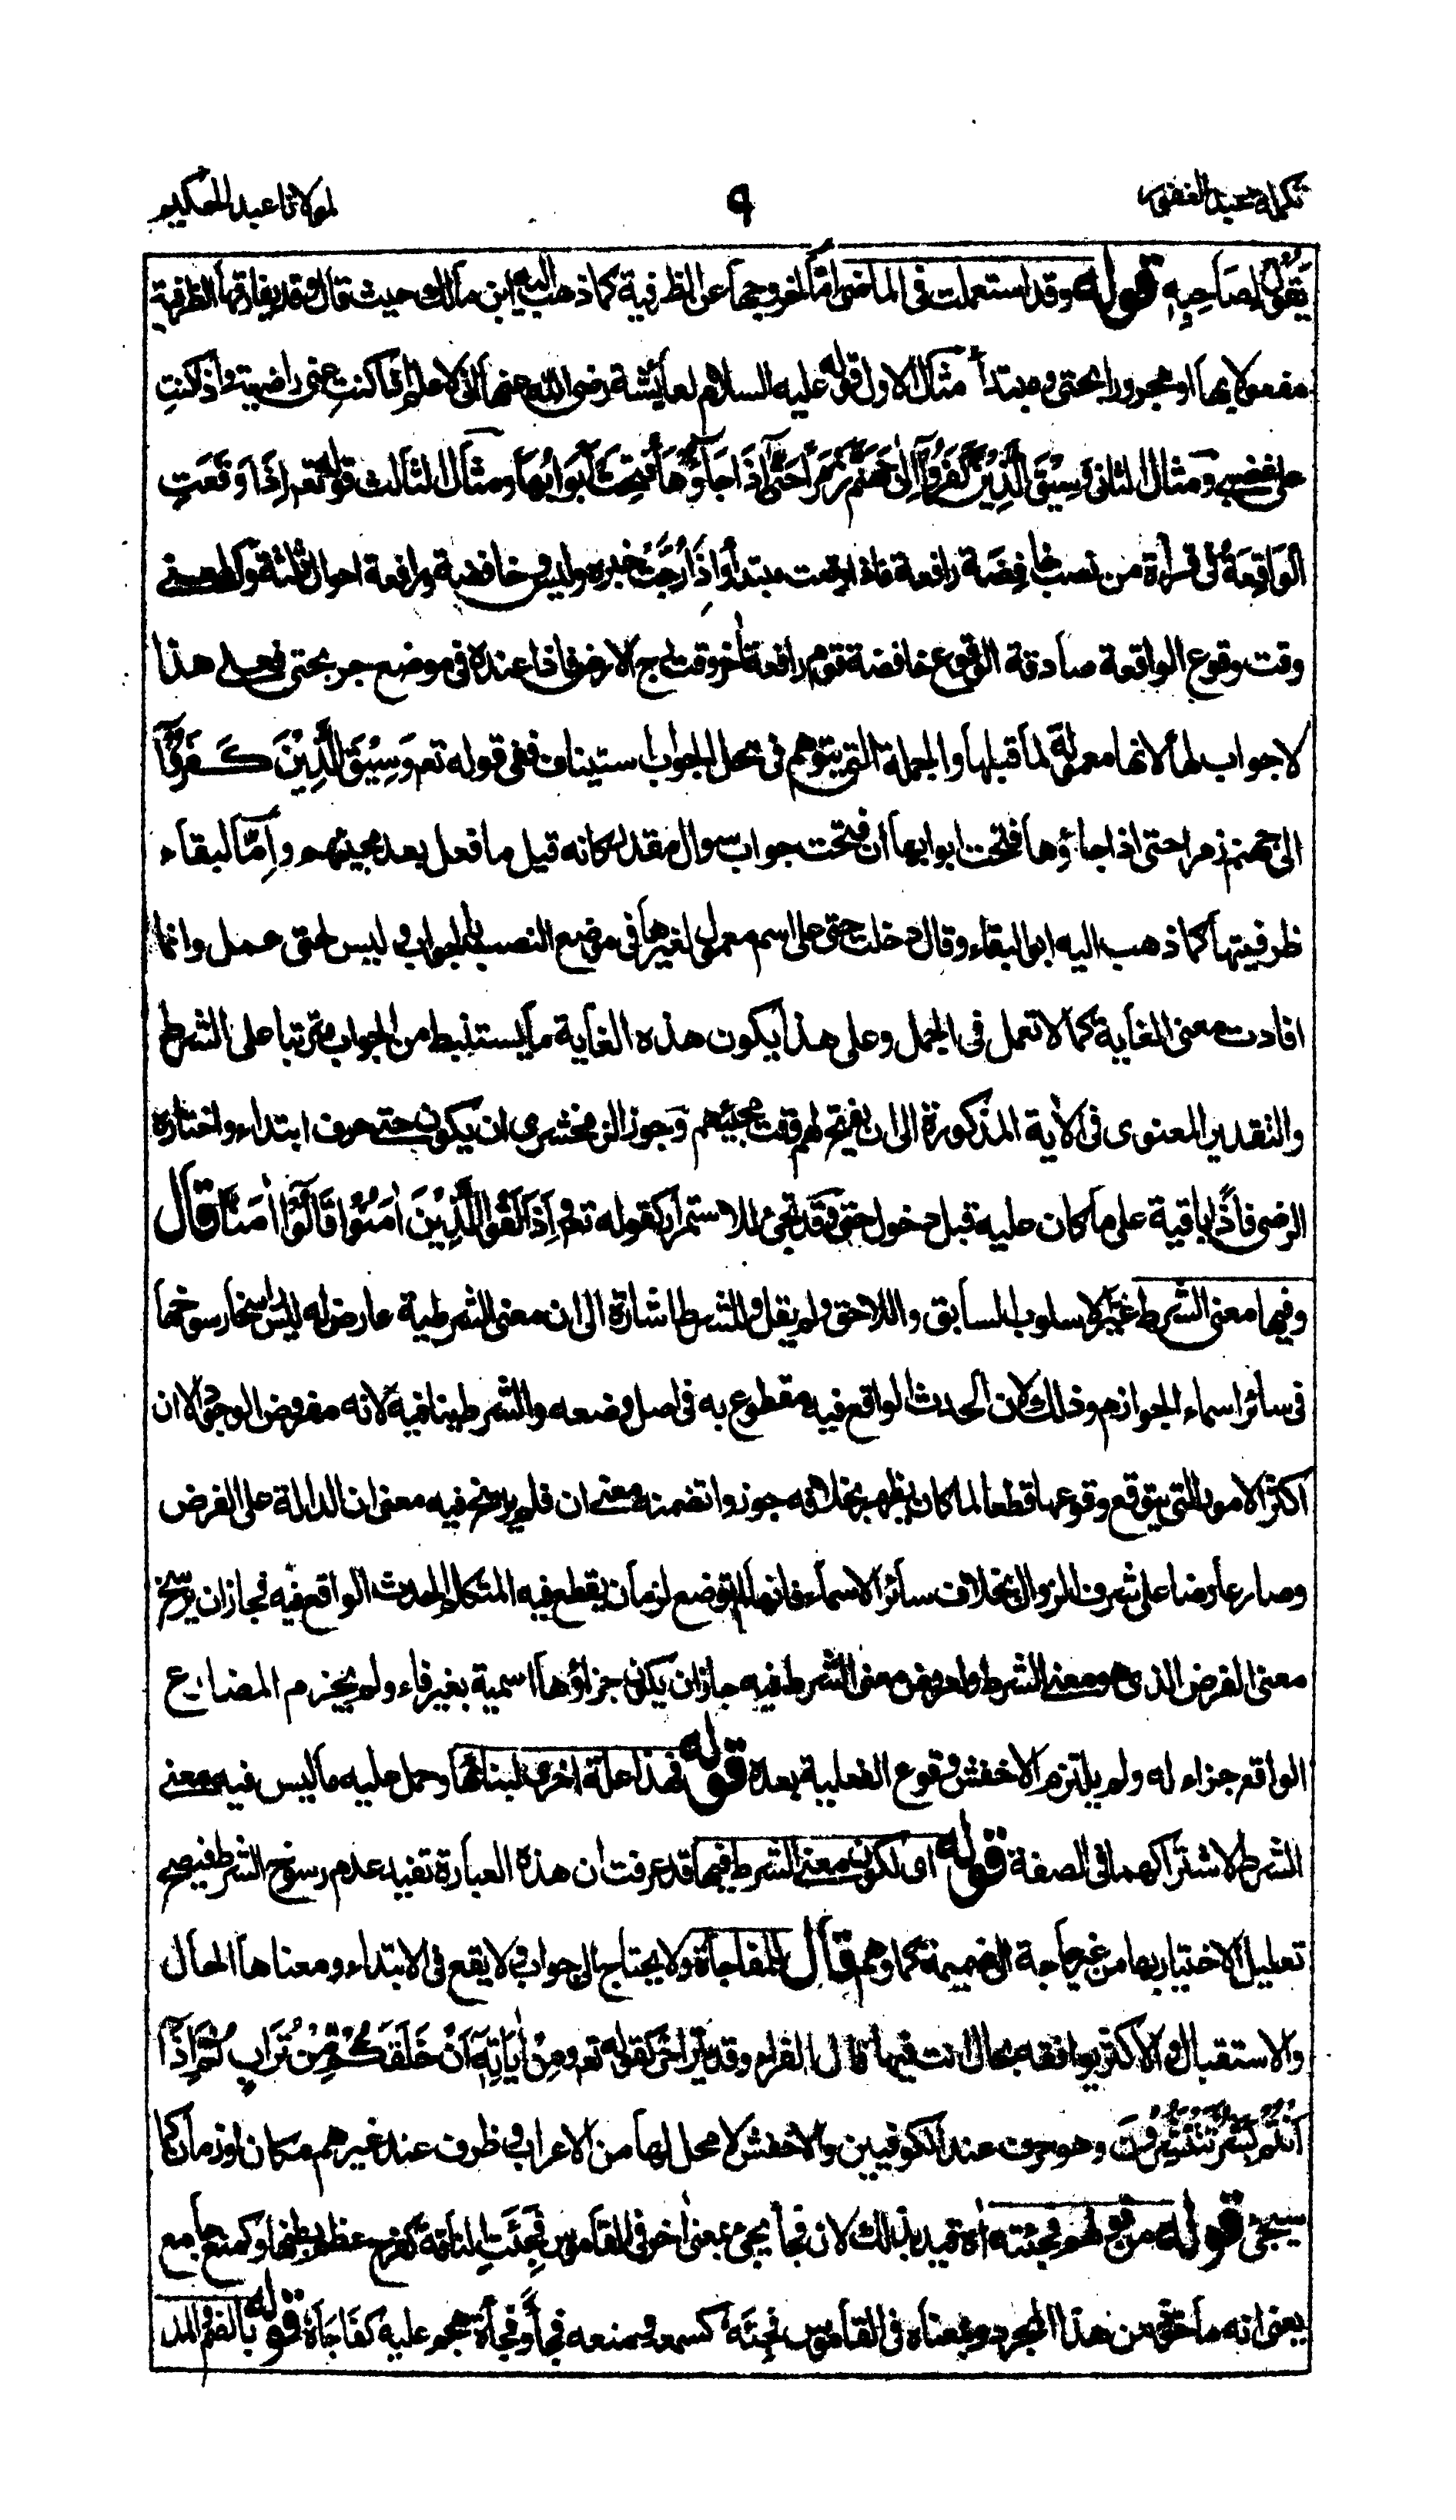 تكملة عبد الغفور ٩ لمولانا عبد الحكيم
يَقُوْلُ لِصَاحِبِهٖ قوله وقد استعملت فى الماضى اما لخروجها عن الظرفية كما ذهب اليه ابن مالك حيث قال وقد يفارقها الظرفية
مفعولا بها او مجرورا بحتى ومبتدأ مثال الاول قوله عليه السلام لعايشة رضى الله عنها انى لاعلم اذا كنتِ عنى راضية واذا كنتِ
على غضبى ومثال الثانى وَسِيْقَ الَّذِيْنَ كَفَرُوْٓا اِلٰى جَهَنَّمَ زُمَرًا حَتّٰى اِذَا جَآؤُهَا فُتِحَتْ اَبْوَابُهَا ومثال الثالث قوله تعم اِذَا وَقَعَتِ
الْوَاقِعَةُ فى قراءة من نصب خافِضَة رافعة فاذا وقعت مبتدأ وَاِذَا رُجَّتْ خبره وليس وخافضة ورافعة احوال ثلثة والمعنى
وقت وقوع الواقعة صادقة الوقوع خافضة قوم رافعة اخر وقت رج الارض فاذا عنده فى موضع جر بحتى فعلى هذا
لا جواب لها لانها معمولة لما قبلها والجملة التى يتوهم فى محل الجواب استيناف ففى قوله تعم وَسِيْقَ الَّذِيْنَ كَفَرُوْٓا
الى جهنم زمرا حتى اذا جاؤها فتحت ابوابها ان فتحت جواب سوال مقدر كانه قيل ما فعل بعد مجيئهم واِمّا لبقاء
ظرفيتها كما ذهب اليه ابو البقاء وقال دخلت حتى على اسم معمول لغيرها فى موضع النصب بالجواب و ليس لحتى عمل وانما
افادت معنى الغاية كما لا تعمل فى الجمل وعلى هذا يكون هذه الغاية ما يستنبط من الجواب مترتبا على الشرط
والتقدير المعنوى فى الأية المذكورة الى ان يفتح لهم وقت مجيئهم وجوز الزمخشرى ان يكون حتى حرف ابتداء واختاره
الرضى فاذًا باقية على ما كان عليه قبل دخول حتى وقد تجئ للاستمرار كقوله تعم وَاِذَا لَقُوا الَّذِيْنَ اٰمَنُوْا قَالُوْٓا اٰمَنَّا قال
وفيها معنى الشرط غير الاسلوب السابق واللاحق ولم يقل وللشرط اشارة الى ان معنى الشرطية عارض له ليس راسخا رسوخها
فى سائر اسماء الجوازم وذلك لان الحدث الواقع فيه مقطوع به فى اصل وضعه والشرط ينافيه لانه مفروض الوجود الا ان
اكثر الامور التى يتوقع وقوعها قطعا لما كان يظهر بخلافه جوزوا تضمنه معنى ان فلم يرسخ فيه معنى ان الدالة على الفرض
وصار عارضا على شرف الزوال بخلاف سائر الاسماء فانها لم توضع لزمان يقطع فيه المتكلم بالحدث الواقع فيه فجاز ان يرسخ
معنى الفرض الذى هو معنى الشرط ولعروض معنى الشرط فيه جاز ان يكون جزاؤها اسمية بغير فاء ولم ينجزم المضارع
الواقع جزاء له ولم يلتزم الاخفش وقوع الفعلية بعده قوله فهذا علة اخرى لبنائها وحمل عليه ما ليس فيه معنى
الشرط لاشتراكهما فى الصفة قوله اى لكون معنى الشرط فيها قد عرفت ان هذه العبارة تفيد عدم رسوخ الشرط فيصح
تعليل الاختيار بها من غير حاجة الى ضميمة كما وهم قال للمفاجأة ولا يحتاج الى جواب ولا يقع فى الابتداء ومعناها الحال
والاستقبال والاكثر يوافقه بحال انت فيها قال الفراء وقد يتراخى كقوله تعم ومِنْ اٰيَاتِهٖٓ اَنْ خَلَقَكُمْ مِّنْ تُرَابٍ ثُمَّ اِذَآ
اَنْتُمْ بَشَرٌ تَنْتَشِرُوْنَ وهو حرف عند الكوفيين والاخفش لا محل لها من الاعراب و ظرف عند غيرهم مكان او زمان كما
سيجئ قوله من قولهم فجئته اه قيد بذلك لان فجأ يجئ بمعنى اخر فى القاموس فَجِئَتِ الناقة كفرح عظم بطنها وكمنع جامع
يعنى انه مأخوذ من هذا المجرد ومعناه فى القاموس فَجِئَهٗ كسمعه ومنعه فجأً وفجأة هجم عليه كفَاجَأَهٗ قوله بالضم والمد